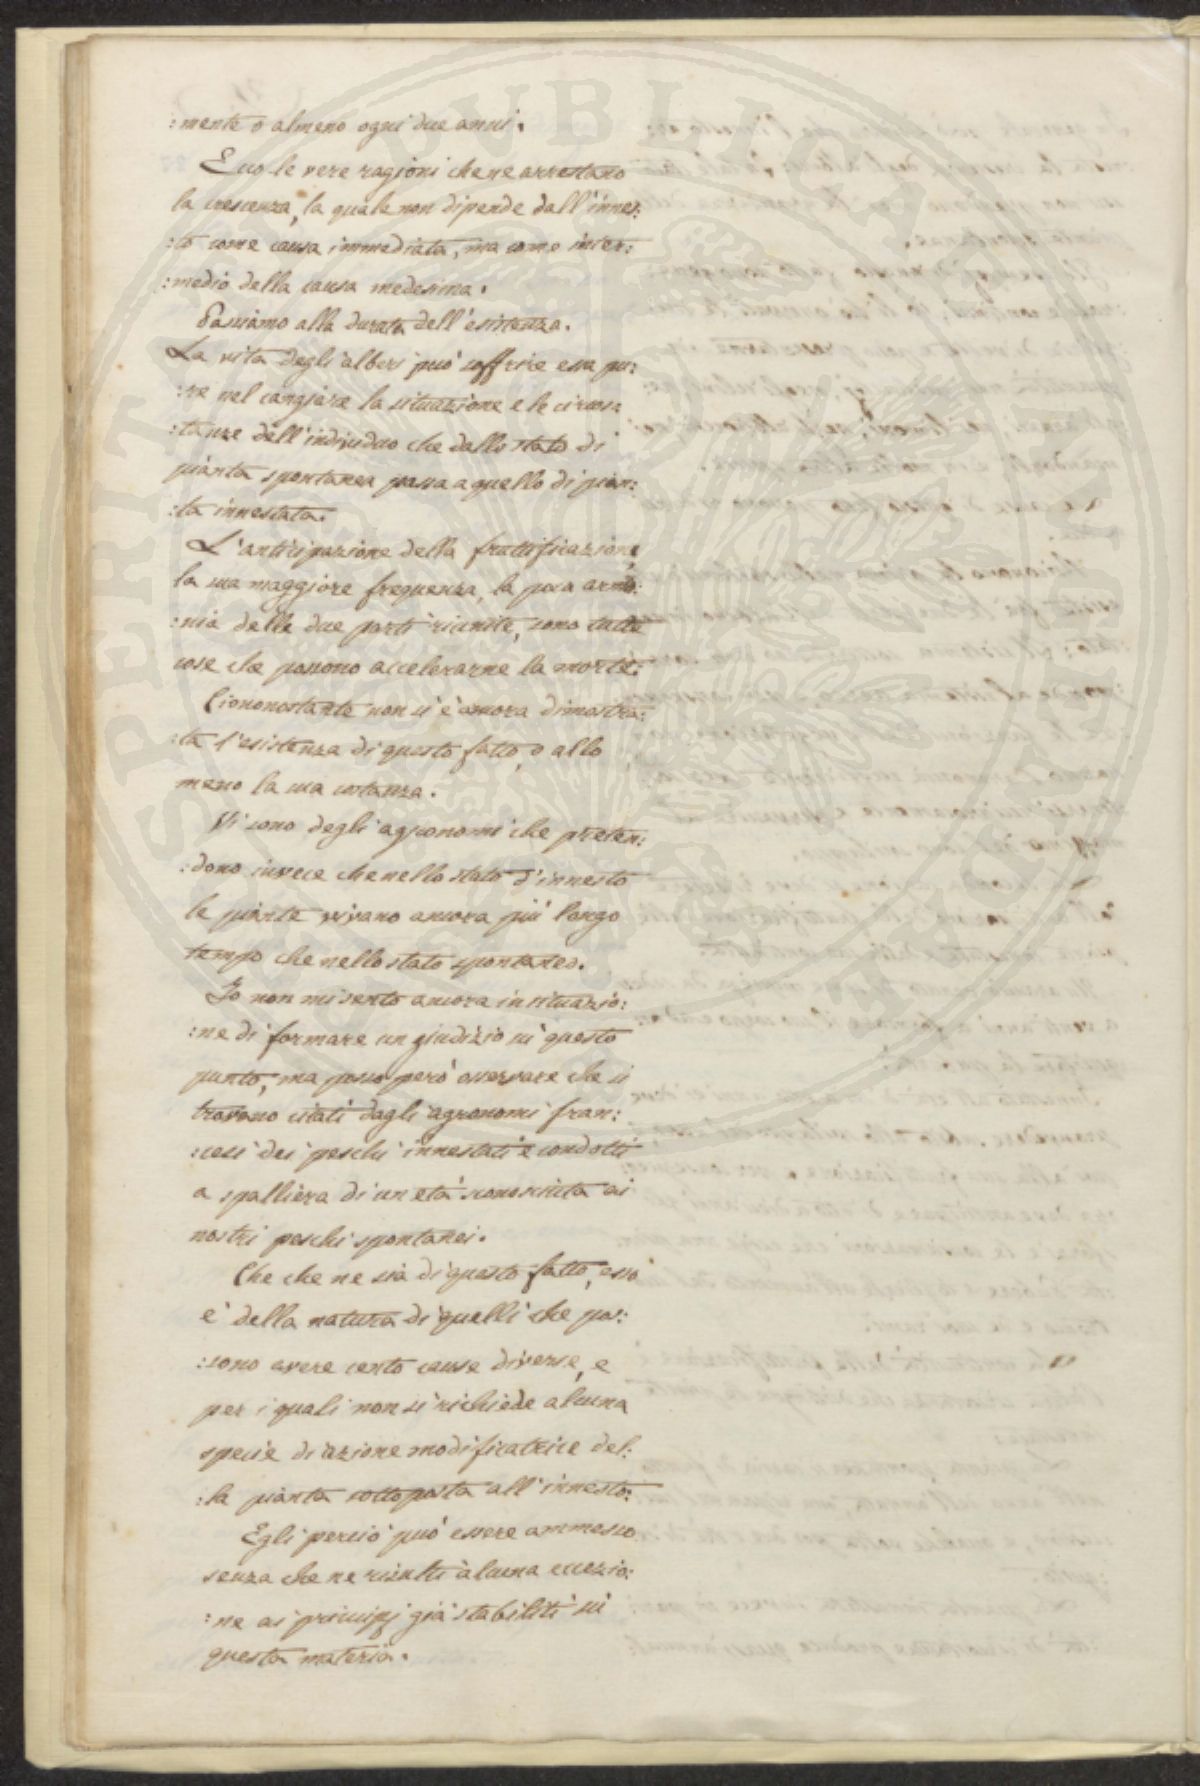 :mente o almeno ogni due anni.
Ecco le vere ragioni che ne arrestano
la crescenza, la quale non dipende dall'innes:
:to come causa immediata, ma come inter:
:medio della causa medesima.
Passiamo alla durata dell'esistenza.
La vita degli alberi può soffrire essa pu:
:re nel cangiare la situazione e le circos:
:tanze dell'individuo che dallo stato di
pianta spontanea passa a quello di pian:
:ta innestata.
L'anticipazione della fruttificazione,
la sua maggiore frequenza, la poca armo:
:nia delle due parti riunite, sono tutte
cose che possono accelerarne la morte.
Ciononostante non si è ancora dimostra:
:ta l'esistenza di questo fatto, o allo
meno la sua costanza.
Vi sono degli agronomi che preten:
:dono invece che nello stato d'innesto
le piante vivano ancora più longo
tempo che nello stato spontaneo.
Io non mi sento ancora in situazio:
:ne di formare un giudizio su questo
punto, ma posso però osservare che si
trovano citati dagli agronomi fran:
:cesi dei peschi innestati e condotti
a spalliera di un età sconosciuta ai
nostri peschi spontanei.
Che che ne sia di questo fatto, esso
è della natura di quelli che pos:
:sono avere cento cause diverse, e
per i quali non si richiede alcuna
specie di azione modificatrice del:
:la pianta sottoposta all'innesto.
Egli perciò può essere ammesso
senza che ne risulti alcuna eccezio:
:ne ai principj già stabiliti su
questa materia.